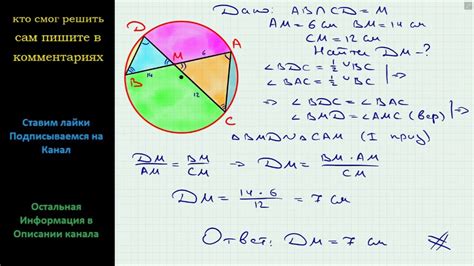 кто смог решить
сам пишите в
комментариях
Ставим лайки
Подписываемся на
Канал
Остальная
Информация в
Описании канала
D
A
M
6
14
B
12
C
Дано: AB∩CD=M
AM=6см BM=14см
CM=12см
Найти DM-?
∠BDC = ½ ◡BC
∠BAC = ½ ◡BC |⇒
⇒ ∠BDC = ∠BAC
∠BMD = ∠AMC (вер) |⇒
△BMD ∾ △CAM (I приз)
DM/AM = BM/CM ⇒ DM = BM·AM/CM
DM = 14·6/12 = 7 см
Ответ: DM=7 см